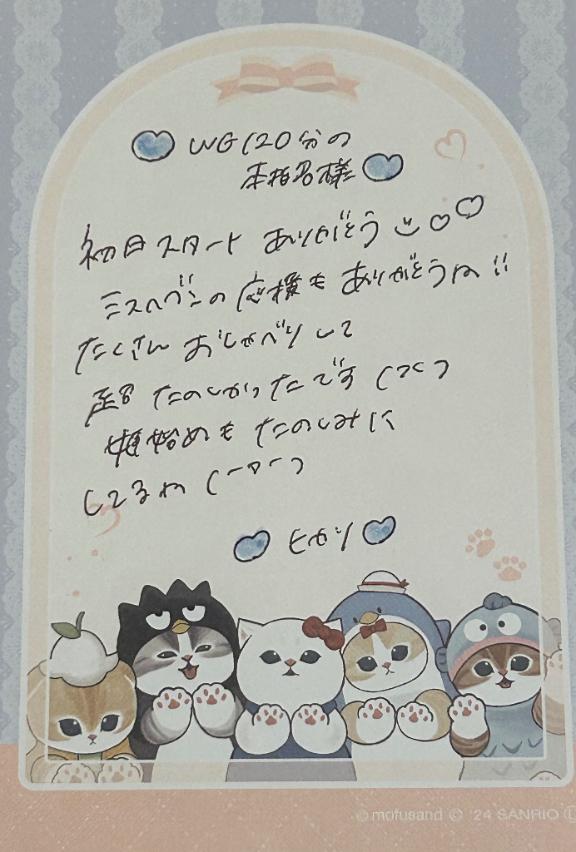 WG120分の
本指名様
初日スタート ありがとう
ミスヘブンの応援も ありがとうね!!
たくさん おしゃべりして
超 たのしかったです
姫始めも たのしみに
してるね
ヒカリ
© mofusand © '24 SANRIO